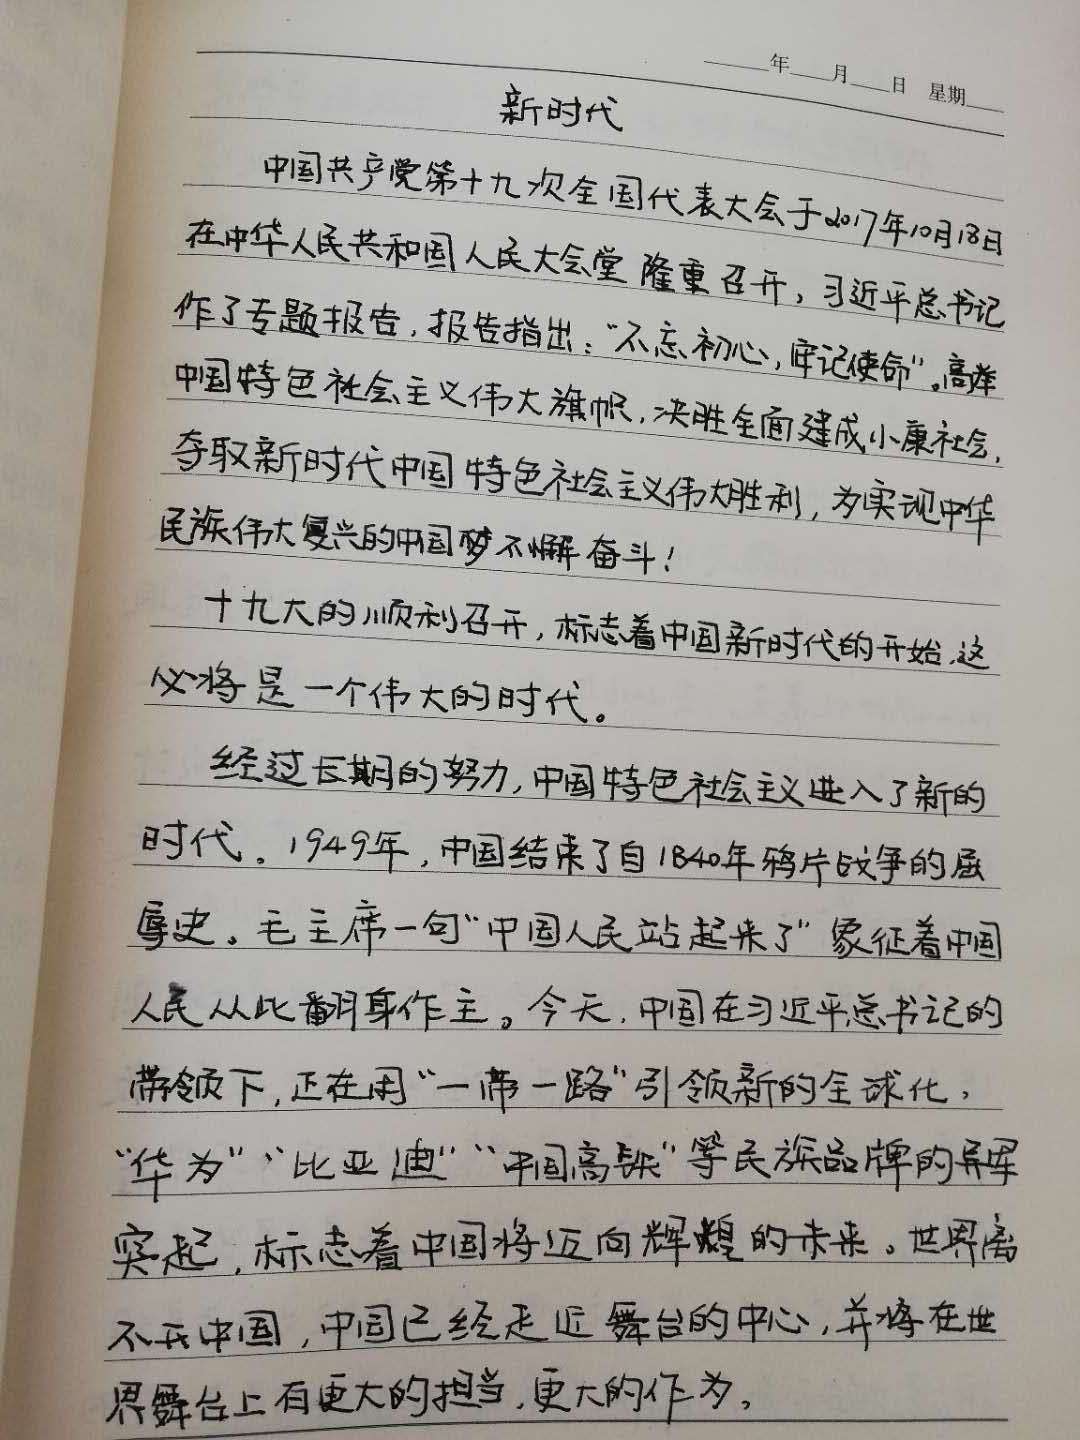 ____年____月____日 星期____
新时代
中国共产党第十九次全国代表大会于2017年10月18日
在中华人民共和国人民大会堂隆重召开，习近平总书记
作了专题报告，报告指出：“不忘初心，牢记使命”。高举
中国特色社会主义伟大旗帜，决胜全面建成小康社会，
夺取新时代中国特色社会主义伟大胜利，为实现中华
民族伟大复兴的中国梦不懈奋斗！
十九大的顺利召开，标志着中国新时代的开始，这
必将是一个伟大的时代。
经过长期的努力，中国特色社会主义进入了新的
时代。1949年，中国结束了自1840年鸦片战争的屈
辱史。毛主席一句“中国人民站起来了”象征着中国
人民从此翻身作主。今天，中国在习近平总书记的
带领下，正在用“一带一路”引领新的全球化，
“华为”“比亚迪”“中国高铁”等民族品牌的异军
突起，标志着中国将迈向辉煌的未来。世界离
不开中国，中国已经走近舞台的中心，并将在世
界舞台上有更大的担当，更大的作为。